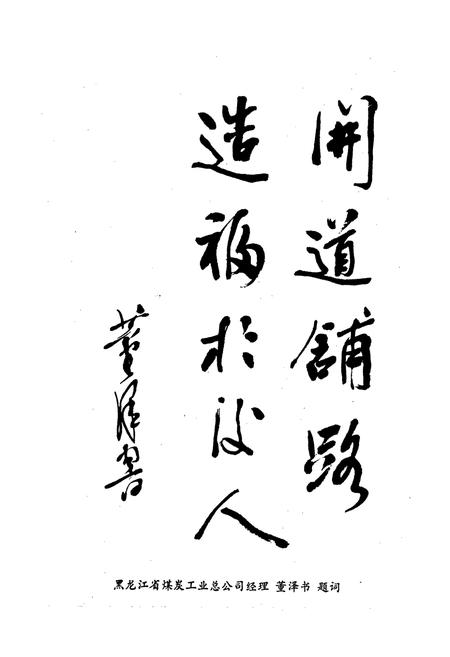 開道舖路
造福於後人
董泽書
黑龙江省煤炭工业总公司经理 董泽书 题词